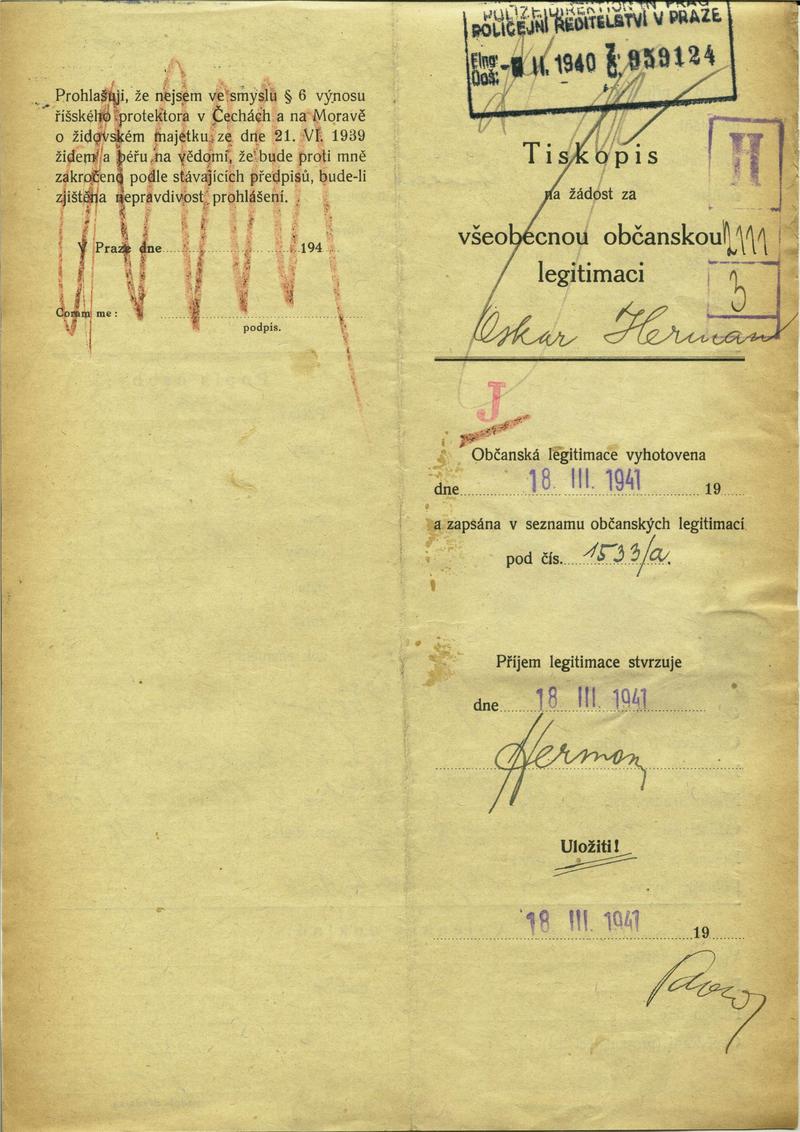 Prohlašuji, že nejsem ve smyslu § 6 výnosu
říšského protektora v Čechách a na Moravě
o židovském majetku ze dne 21. VI. 1939
židem a béřu na vědomí, že bude proti mně
zakročeno podle stávajících předpisů, bude-li
zjištěna nepravdivost prohlášení.
V Praze dne 194
Coram me:
podpis.
POLIZEIDIREKTION IN PRAG
POLICEJNÍ ŘEDITELSTVÍ V PRAZE
Eing.
Doš: II. 1940 959124
H
Tiskopis
na žádost za
všeobecnou občanskou
legitimaci
3
Oskar Herman
J
Občanská legitimace vyhotovena
dne 18 III. 1941 19
a zapsána v seznamu občanských legitimací
pod čís. 1533/a.
Příjem legitimace stvrzuje
dne 18 III. 1941
Herman
Uložiti!
18 III. 1941 19